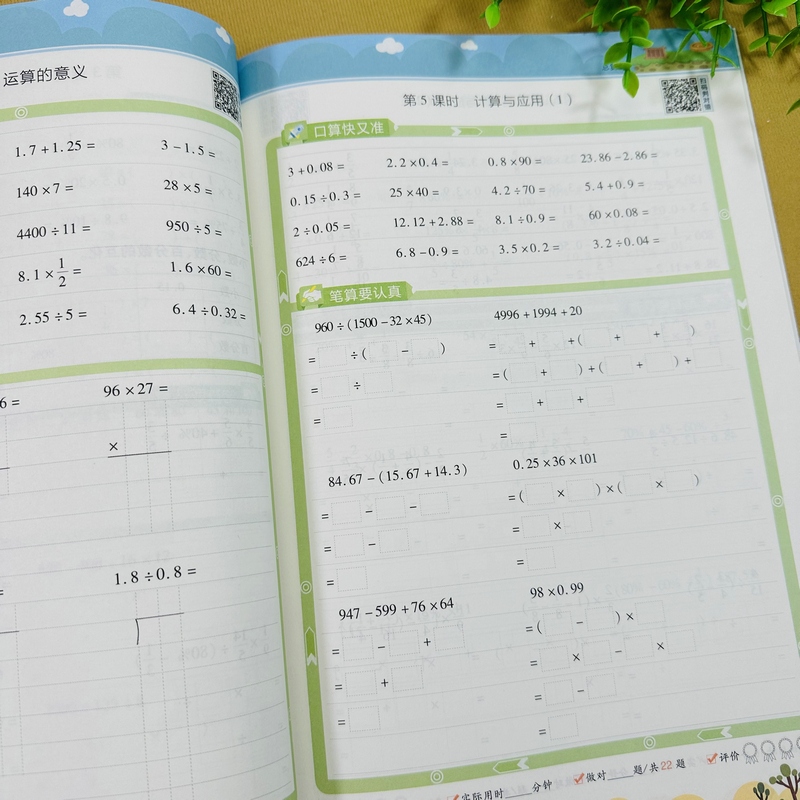 运算的意义
1.7+1.25=
3-1.5=
140×7=
28×5=
4400÷11=
950÷5=
8.1×1/2=
1.6×60=
2.55÷5=
6.4÷0.32=
6=
96×27=
×
=
1.8÷0.8=
第5课时 计算与应用(1)
扫码判对错
口算快又准
3+0.08= 2.2×0.4= 0.8×90= 23.86-2.86=
0.15÷0.3= 25×40= 4.2÷70= 5.4+0.9=
2÷0.05= 12.12+2.88= 8.1÷0.9= 60×0.08=
624÷6= 6.8-0.9= 3.5×0.2= 3.2÷0.04=
笔算要认真
960÷(1500-32×45)
= ÷( - )
= ÷
=
4996+1994+20
= + +( + + )
=( + )+( + )+
= + +
=
84.67-(15.67+14.3)
= - -
= -
=
0.25×36×101
=( × )×( × )
= ×
=
947-599+76×64
= - +
= +
=
98×0.99
=( - )×
= × - ×
= -
=
实际用时 分钟 做对 题/共22题 评价